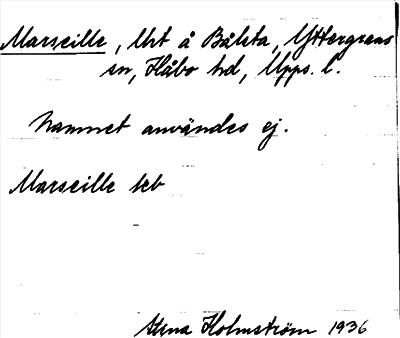 Marseille, lht å Bålsta, Yttergrans
sn, Håbo hd, Upps. l.
Namnet användes ej.
Marseille teb
Stina Holmström 1936